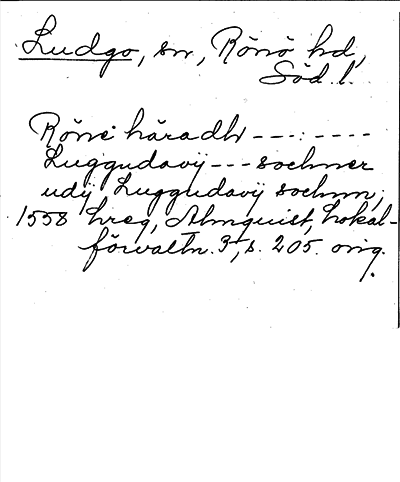 Ludgo, sn, Rönö hd,
Söd. l.
Röne häradh ---:----
Luggudavÿ --- sochner
udÿ Luggudavÿ sochnn;
1558 hreg, Almquist, Lokal-
förvaltn. 3, s. 205. orig.